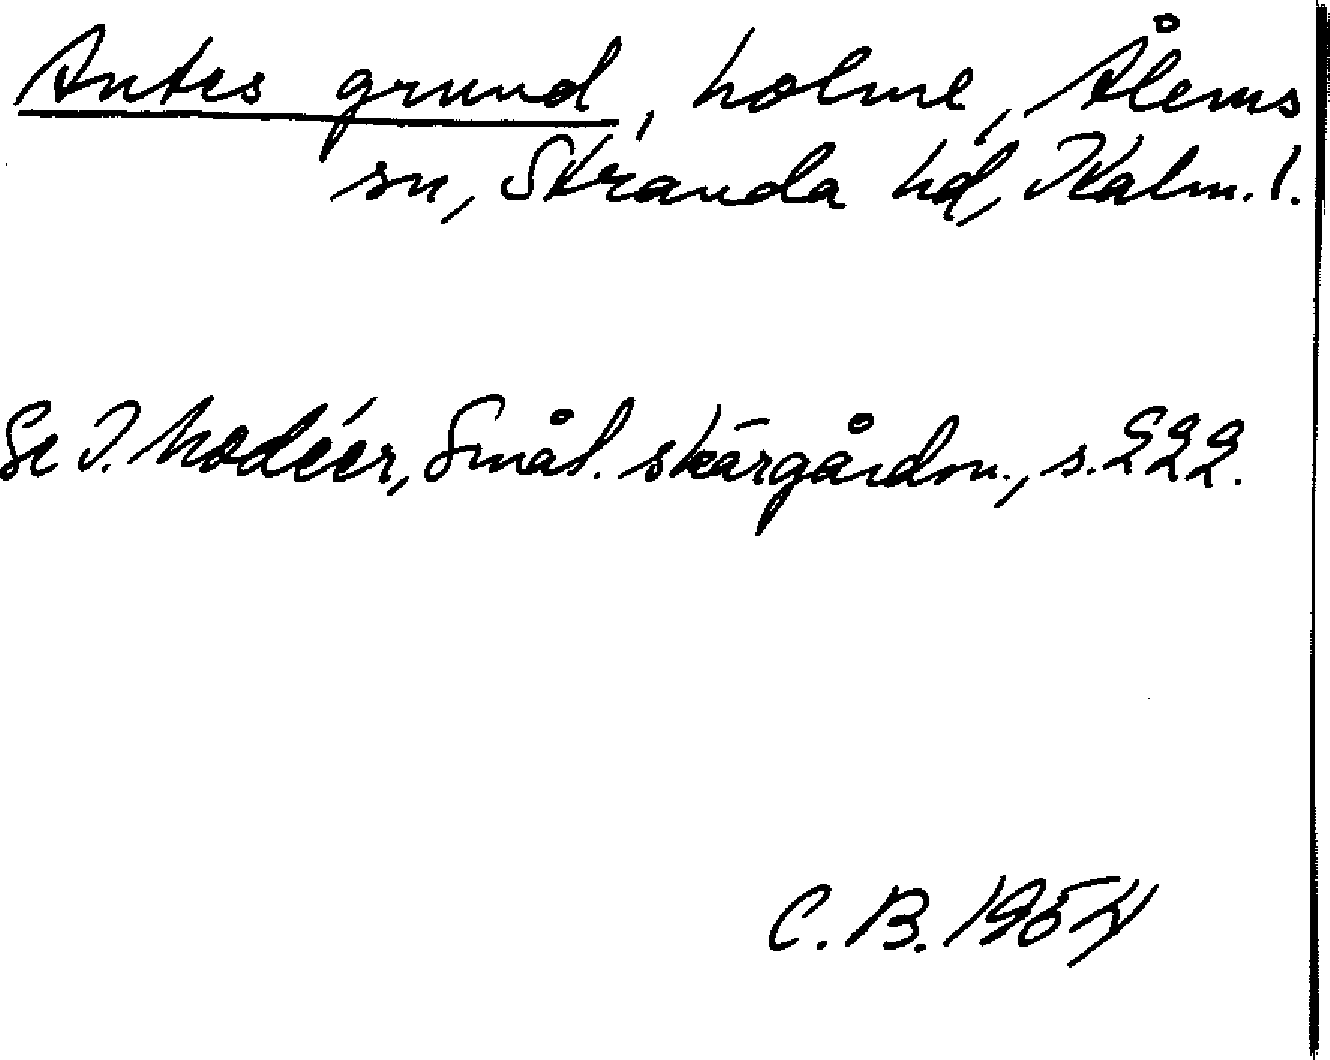 Antes grund, holme, Ålems
sn, Stranda hd, Kalm. l.
Se I. Modéer, Smål. skärgårdsn., s. 222.
C. B. 1954